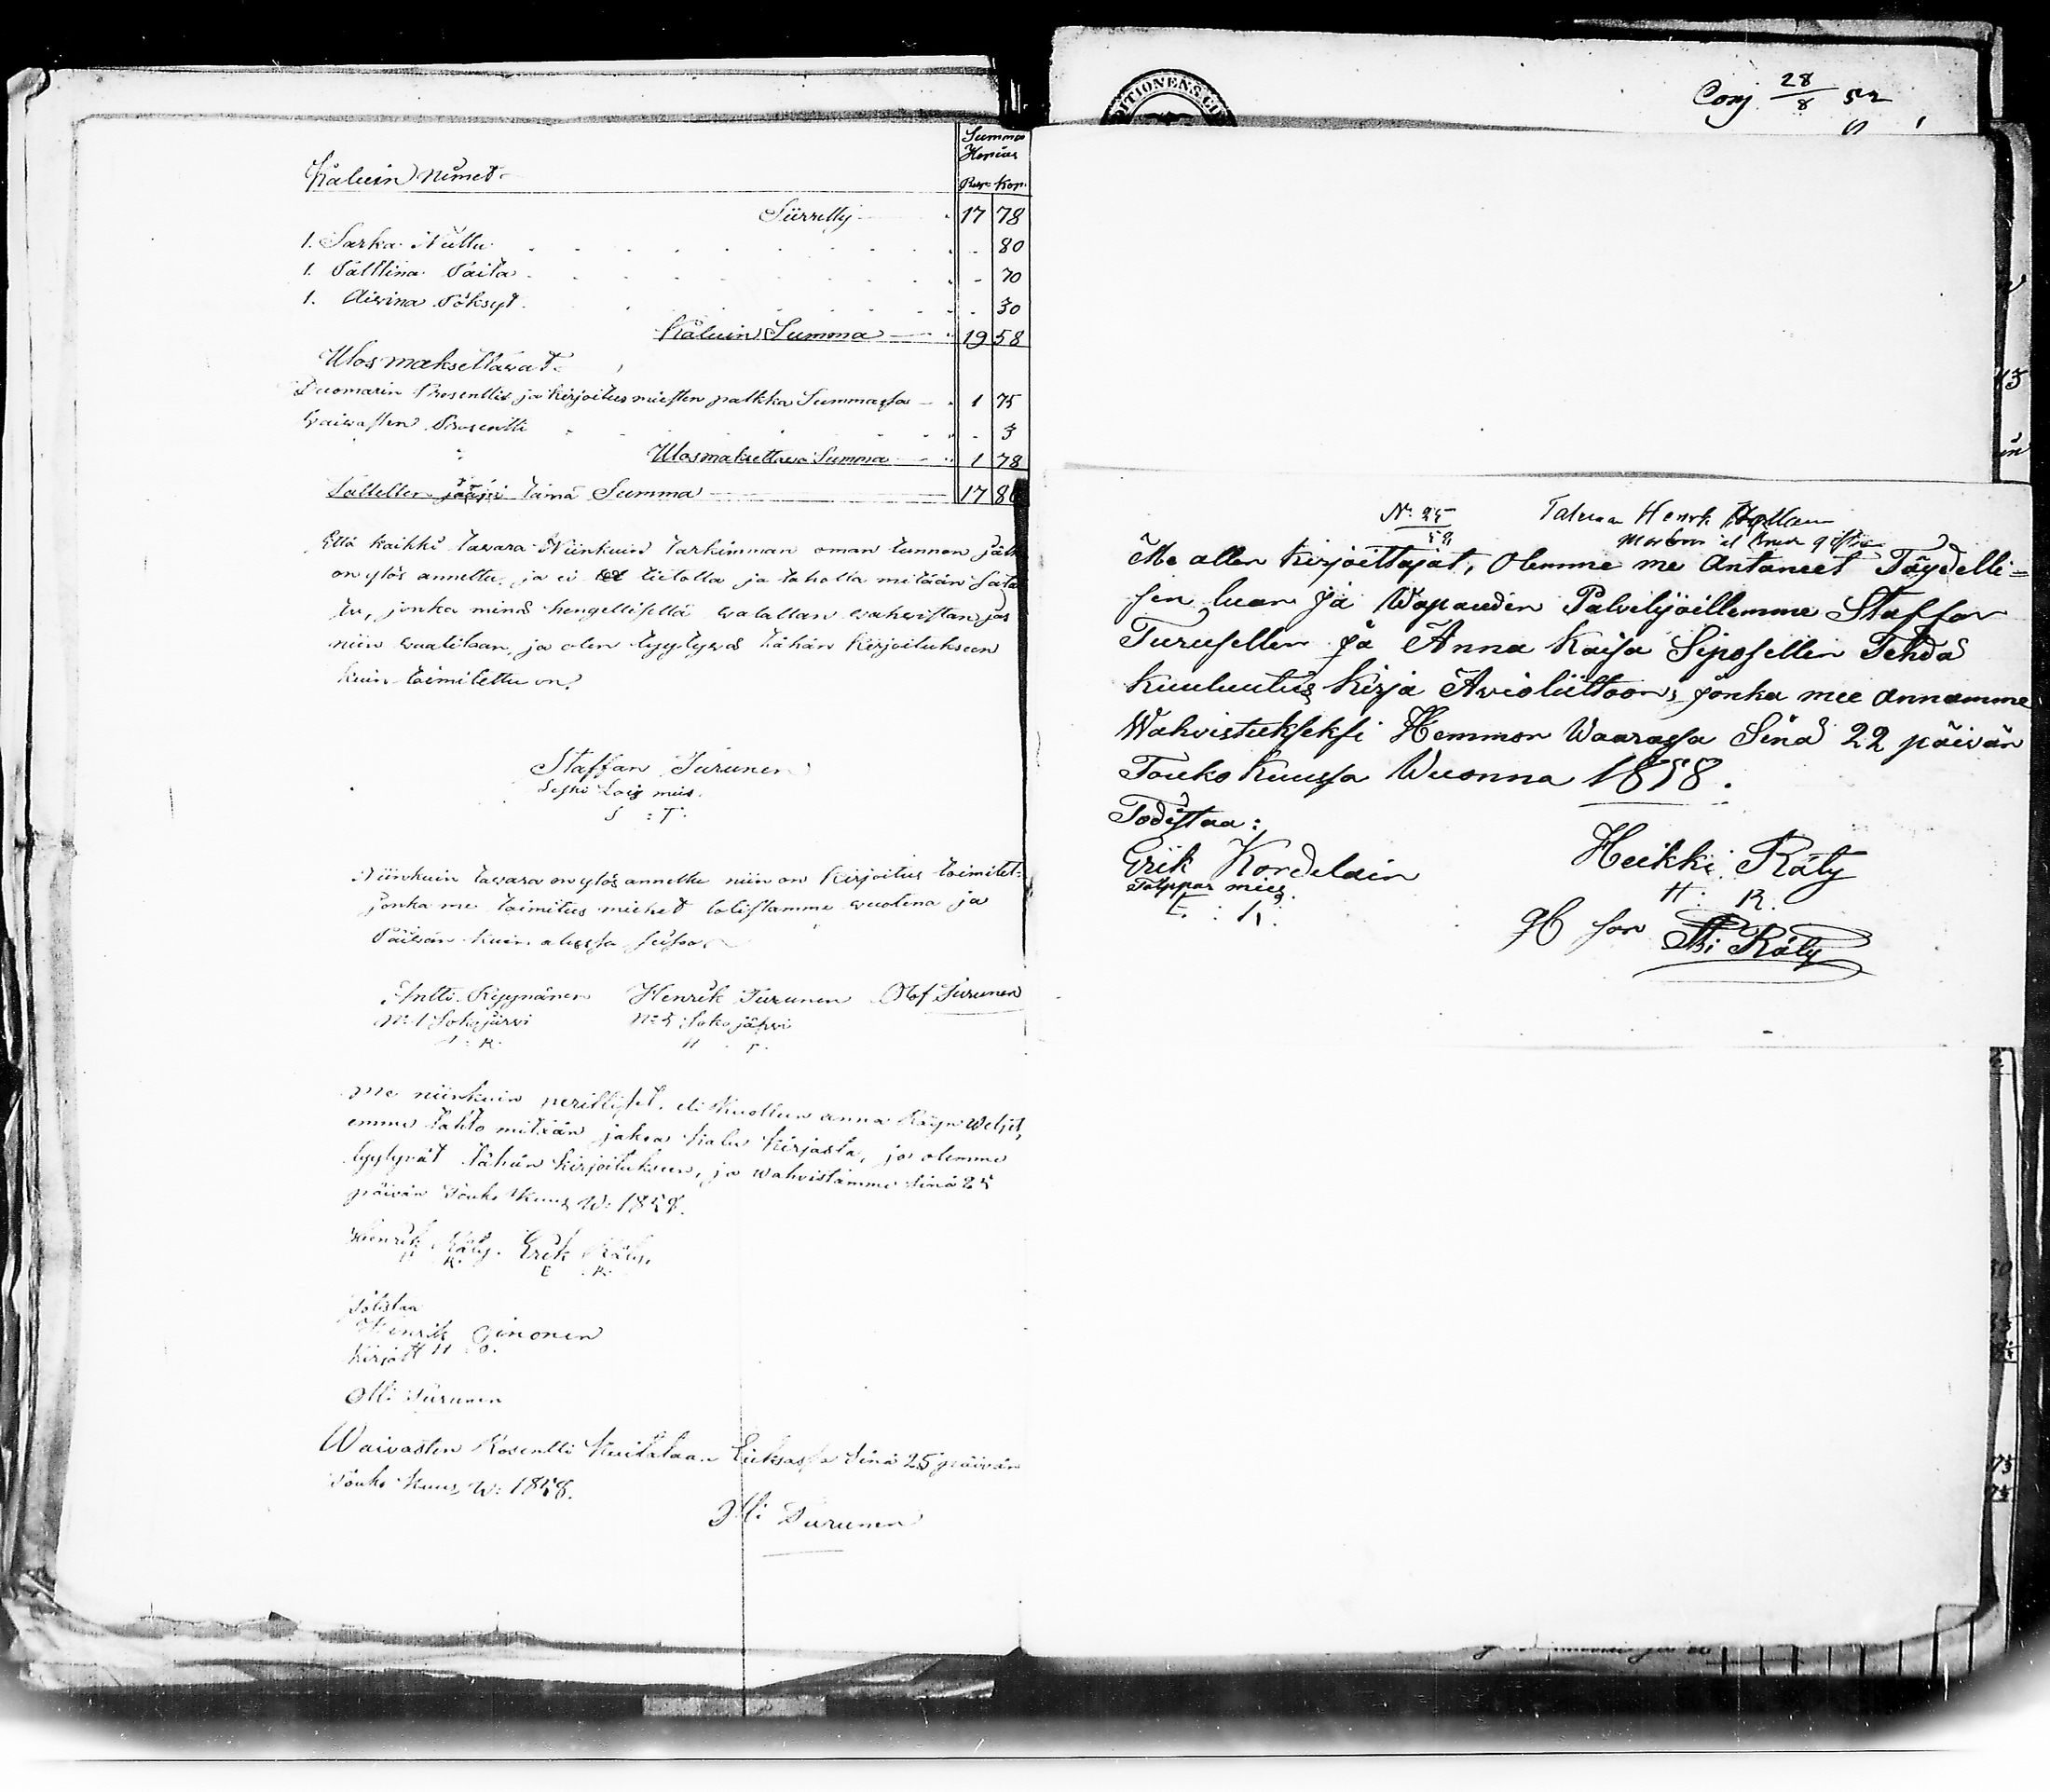 Kaluin Nimet
Summa
Hopias
Rup. Kop.
Siirretty 17 78
1. Sarka Nuttu 80
1. Palttina Paita 70
1. Aivina Pöksyt 30
Kaluin Summa 19 58
Ulosmaksettavat
Duomarin Prosenttis ja kirjoitus miesten palkka Summassa 1 75
Vaivasten Prosentti 3
Ulosmaksettava Summa 1 78
Tallellen jääpi tämä Summa 17 80
Että kaikki tavara Niinkuin tarkimman oman tunnon
on ylös annettu, ja ei tietolla ja taholla mitään
tu, jonka minä hengellisellä walallan wahwistan jos
niin waaditaan, ja olen tyytywä tähän Kirjoitukseen
kuin toimitettu on.
Staffan Turunen
Leski Lois mies.
S : T.
Niinkuin tawara on ylös annettu niin on Kirjoitus toimitet-
jonka me toimitus miehet totistamme wuotena ja
Päiwän kuin alussa seisoo
Antti Ryynänen Henrik Turunen Olof Turunen
No 1 Sokojärvi No 5 Sokojärvi
A : R. H : T.
Me niinkuin perilliset, eli Kuollun anna Rätyn Weljet,
emme tahto mitään jakoa Kalu Kirjasta, ja olemme
tyytyvät tähän kirjoitukseen, ja wahvistamme Sinä 25
päivän Touko Kuus W: 1858.
Henrik Räty. Erik Räty.
H R. E R.
Totistaa
Henrik Oinonen
Kirjoitt H O.
Olli Turunen
Waivasten Rosentti Kuitataan Lieksassa Sinä 25 päivän
Touko Kuus W: 1858.
Olli Turunen
ITIONENS
Conj 28/8 52
No 25
58
Talman Henrik
Me allen kirjoittajat, Olemme me Antaneet Täydelli=
sen luan Ja Wapauden Palvelijoillemme Staffan
Turusellen Ja Anna Kaisa Siposellen Tehdä
Kuulutus Kirja Avioliittoon, Jonka mee annamme
Wahvistukseksi Hemmon Waarassa Sinä 22 päivän
Touko Kuussa Wuonna 1858.
Todistaa:
Erik Kordelain
Talppar mies
E. : K.
Heikki Räty
H : R.
Räty